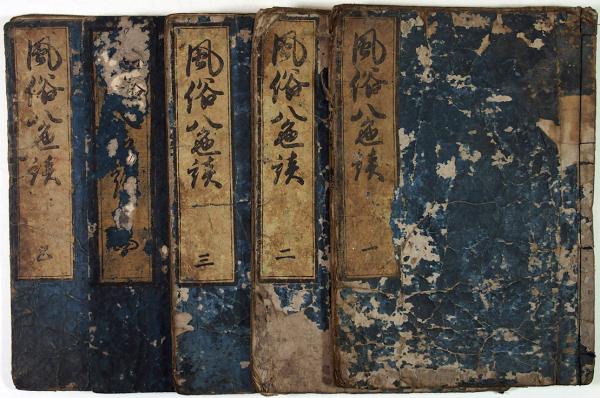 風俗八色談 一
風俗八色談 二
風俗八色談 三
四
風俗八色談 五